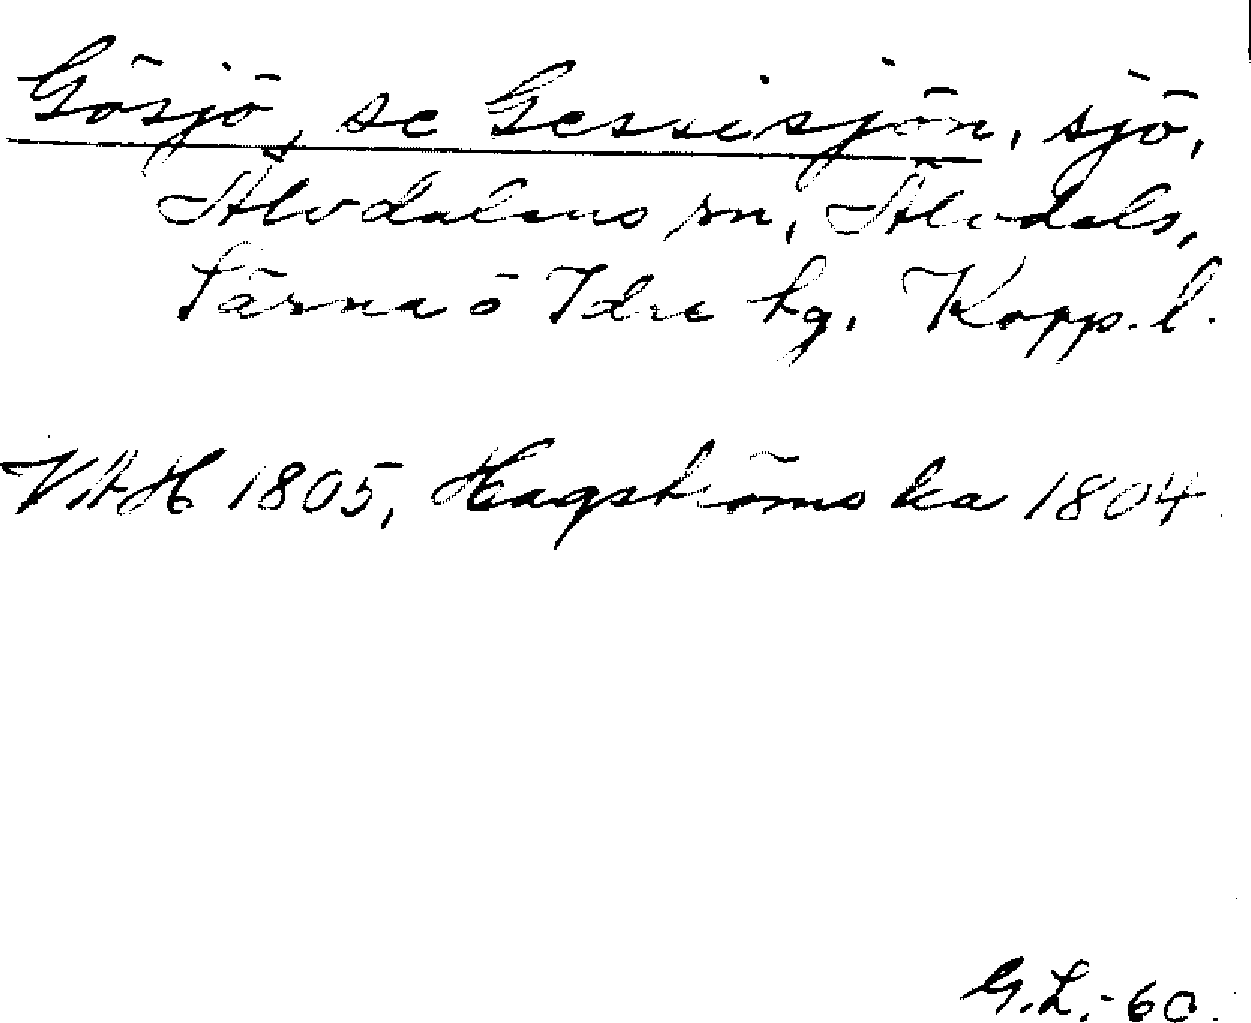 Gösjö, se Gessisjön, sjö,
Älvdalens sn, Älvdals,
Särna o Idre tg, Kopp. l.
VAH 1805, Hagströms ka 1804.
G.L.-60.